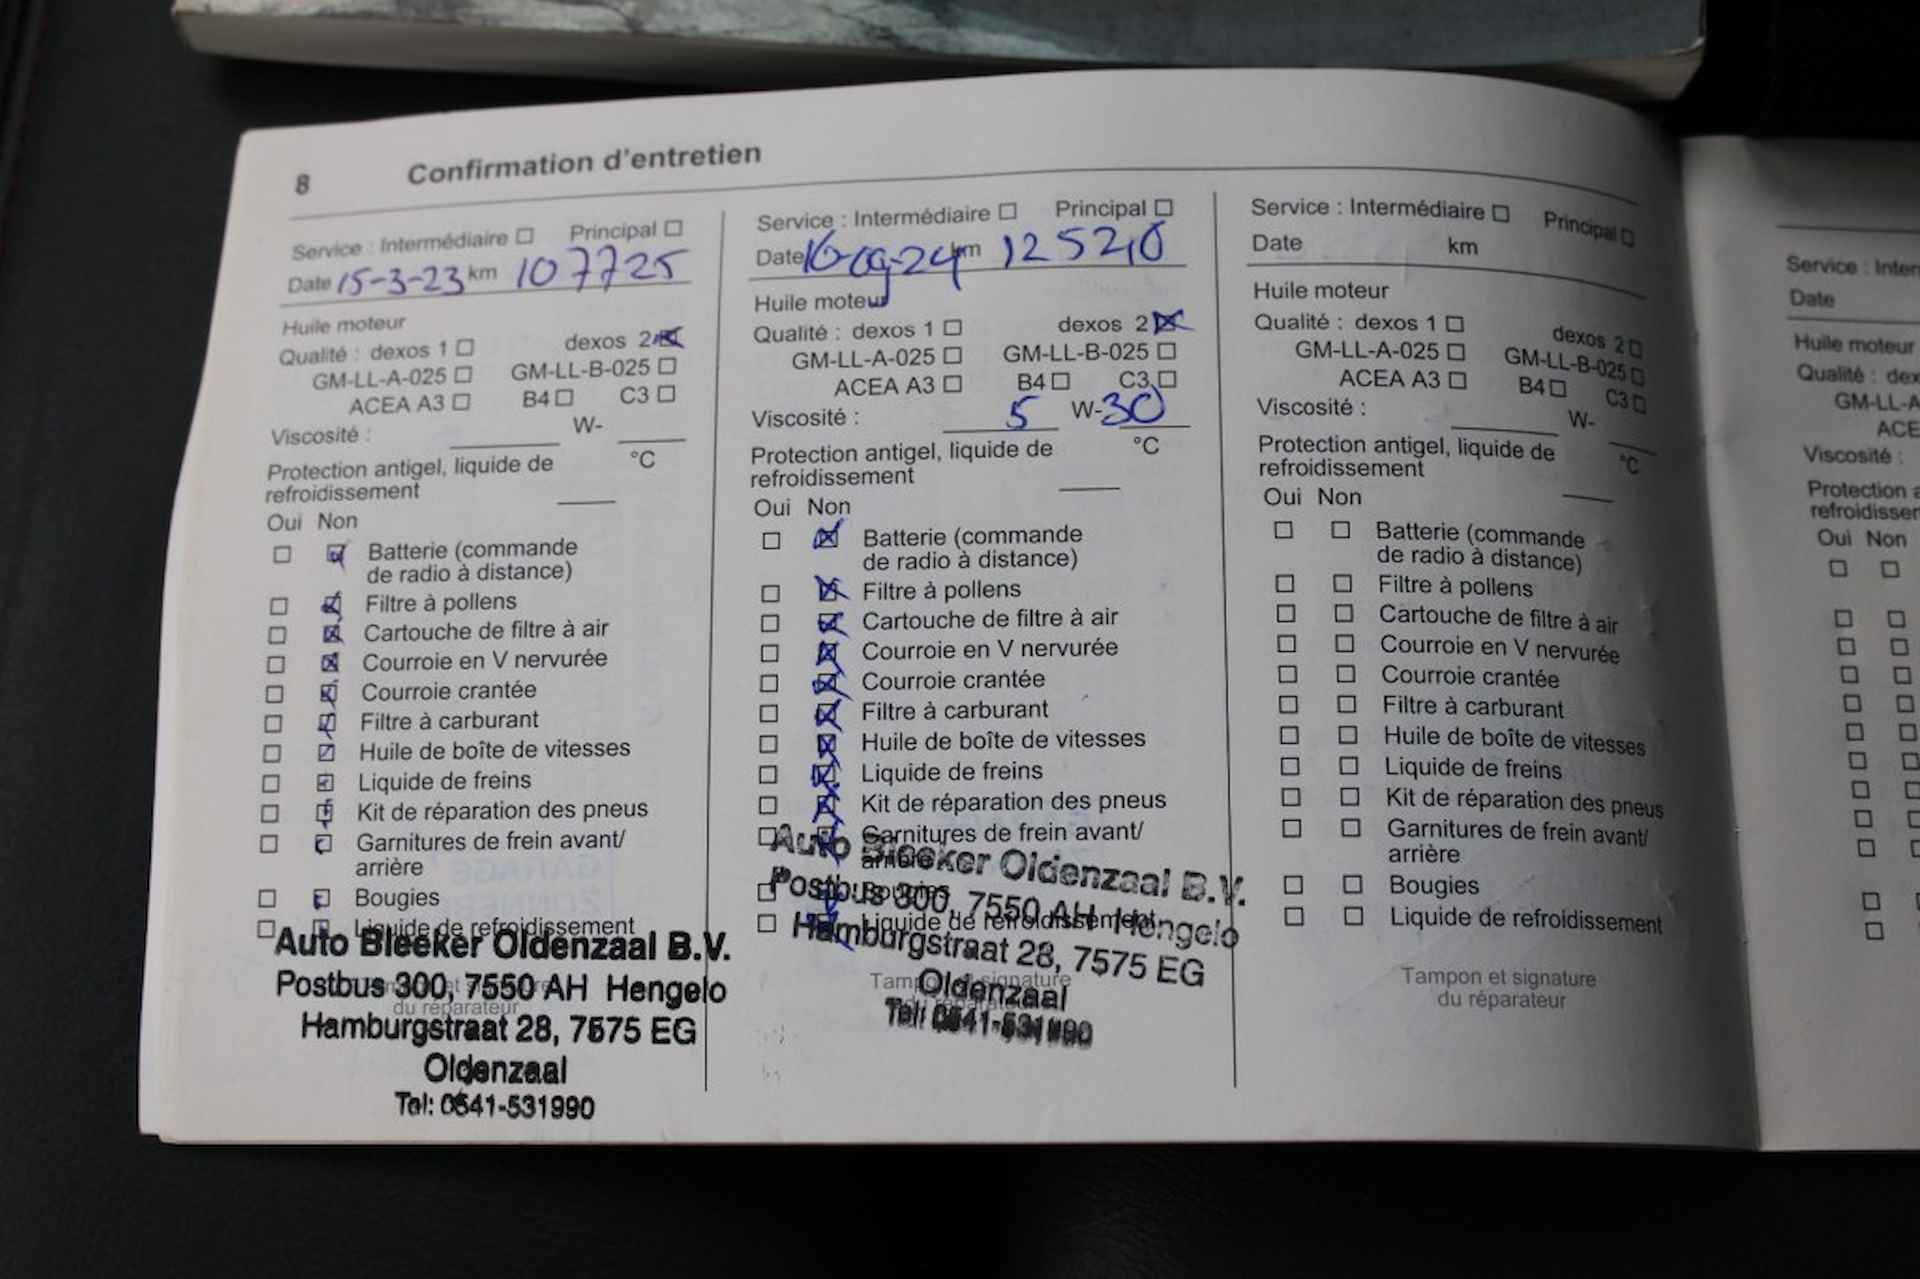 8 Confirmation d'entretien
Service : Intermédiaire Principal
Date 15-3-23 km 107725
Huile moteur
Qualité : dexos 1 dexos 2
GM-LL-A-025 GM-LL-B-025
ACEA A3 B4 C3
Viscosité : W-
Protection antigel, liquide de °C
refroidissement
Oui Non
Batterie (commande
de radio à distance)
Filtre à pollens
Cartouche de filtre à air
Courroie en V nervurée
Courroie crantée
Filtre à carburant
Huile de boîte de vitesses
Liquide de freins
Kit de réparation des pneus
Garnitures de frein avant/
arrière
Bougies
Liquide de refroidissement
Auto Bleeker Oldenzaal B.V.
Postbus 300, 7550 AH Hengelo
Hamburgstraat 28, 7575 EG
Oldenzaal
Tel: 0541-531990
Service : Intermédiaire Principal
Date 16-09-24 km 125210
Huile moteur
Qualité : dexos 1 dexos 2
GM-LL-A-025 GM-LL-B-025
ACEA A3 B4 C3
Viscosité : 5 W-30
Protection antigel, liquide de °C
refroidissement
Oui Non
Batterie (commande
de radio à distance)
Filtre à pollens
Cartouche de filtre à air
Courroie en V nervurée
Courroie crantée
Filtre à carburant
Huile de boîte de vitesses
Liquide de freins
Kit de réparation des pneus
Garnitures de frein avant/
arrière
Bougies
Liquide de refroidissement
Tampon et signature
du réparateur
Auto Bleeker Oldenzaal B.V.
Postbus 300, 7550 AH Hengelo
Hamburgstraat 28, 7575 EG
Oldenzaal
Tel: 0541-531990
Service : Intermédiaire Principal
Date km
Huile moteur
Qualité : dexos 1 dexos 2
GM-LL-A-025 GM-LL-B-025
ACEA A3 B4 C3
Viscosité : W-
Protection antigel, liquide de °C
refroidissement
Oui Non
Batterie (commande
de radio à distance)
Filtre à pollens
Cartouche de filtre à air
Courroie en V nervurée
Courroie crantée
Filtre à carburant
Huile de boîte de vitesses
Liquide de freins
Kit de réparation des pneus
Garnitures de frein avant/
arrière
Bougies
Liquide de refroidissement
Tampon et signature
du réparateur
Service : Inter
Date
Huile moteur
Qualité : dex
GM-LL-A
ACE
Viscosité :
Protection a
refroidisser
Oui Non